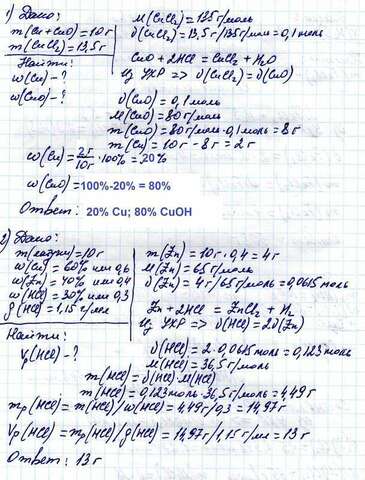 1) Дано:
m(Cu + CuO) = 10г
m(CuCl₂) = 13,5г
Найти:
w(Cu) - ?
w(CuO) - ?
M(CuCl₂) = 135г/моль
ν(CuCl₂) = 13,5г/135г/моль = 0,1моль
CuO + 2HCl = CuCl₂ + H₂O
Из УХР => ν(CuCl₂) = ν(CuO)
ν(CuO) = 0,1моль
M(CuO) = 80г/моль
m(CuO) = 80г/моль · 0,1моль = 8г
m(Cu) = 10г - 8г = 2г
w(Cu) = 2г/10г · 100% = 20%
w(CuO) = 100%-20% = 80%
Ответ: 20% Cu; 80% CuOH
2) Дано:
m(латуни) = 10г
w(Cu) = 60% или 0,6
w(Zn) = 40% или 0,4
w(HCl) = 30% или 0,3
ρ(HCl) = 1,15г/мл
Найти:
Vр(HCl) - ?
m(Zn) = 10г · 0,4 = 4г
M(Zn) = 65г/моль
ν(Zn) = 4г/65г/моль = 0,0615моль
Zn + 2HCl = ZnCl₂ + H₂
Из УХР => ν(HCl) = 2ν(Zn)
ν(HCl) = 2 · 0,0615моль = 0,123моль
M(HCl) = 36,5г/моль
m(HCl) = ν(HCl) · M(HCl)
m(HCl) = 0,123моль · 36,5г/моль = 4,49г
mр(HCl) = m(HCl)/w(HCl) = 4,49г/0,3 = 14,97г
Vр(HCl) = mр(HCl)/ρ(HCl) = 14,97г/1,15г/мл = 13г
Ответ: 13г